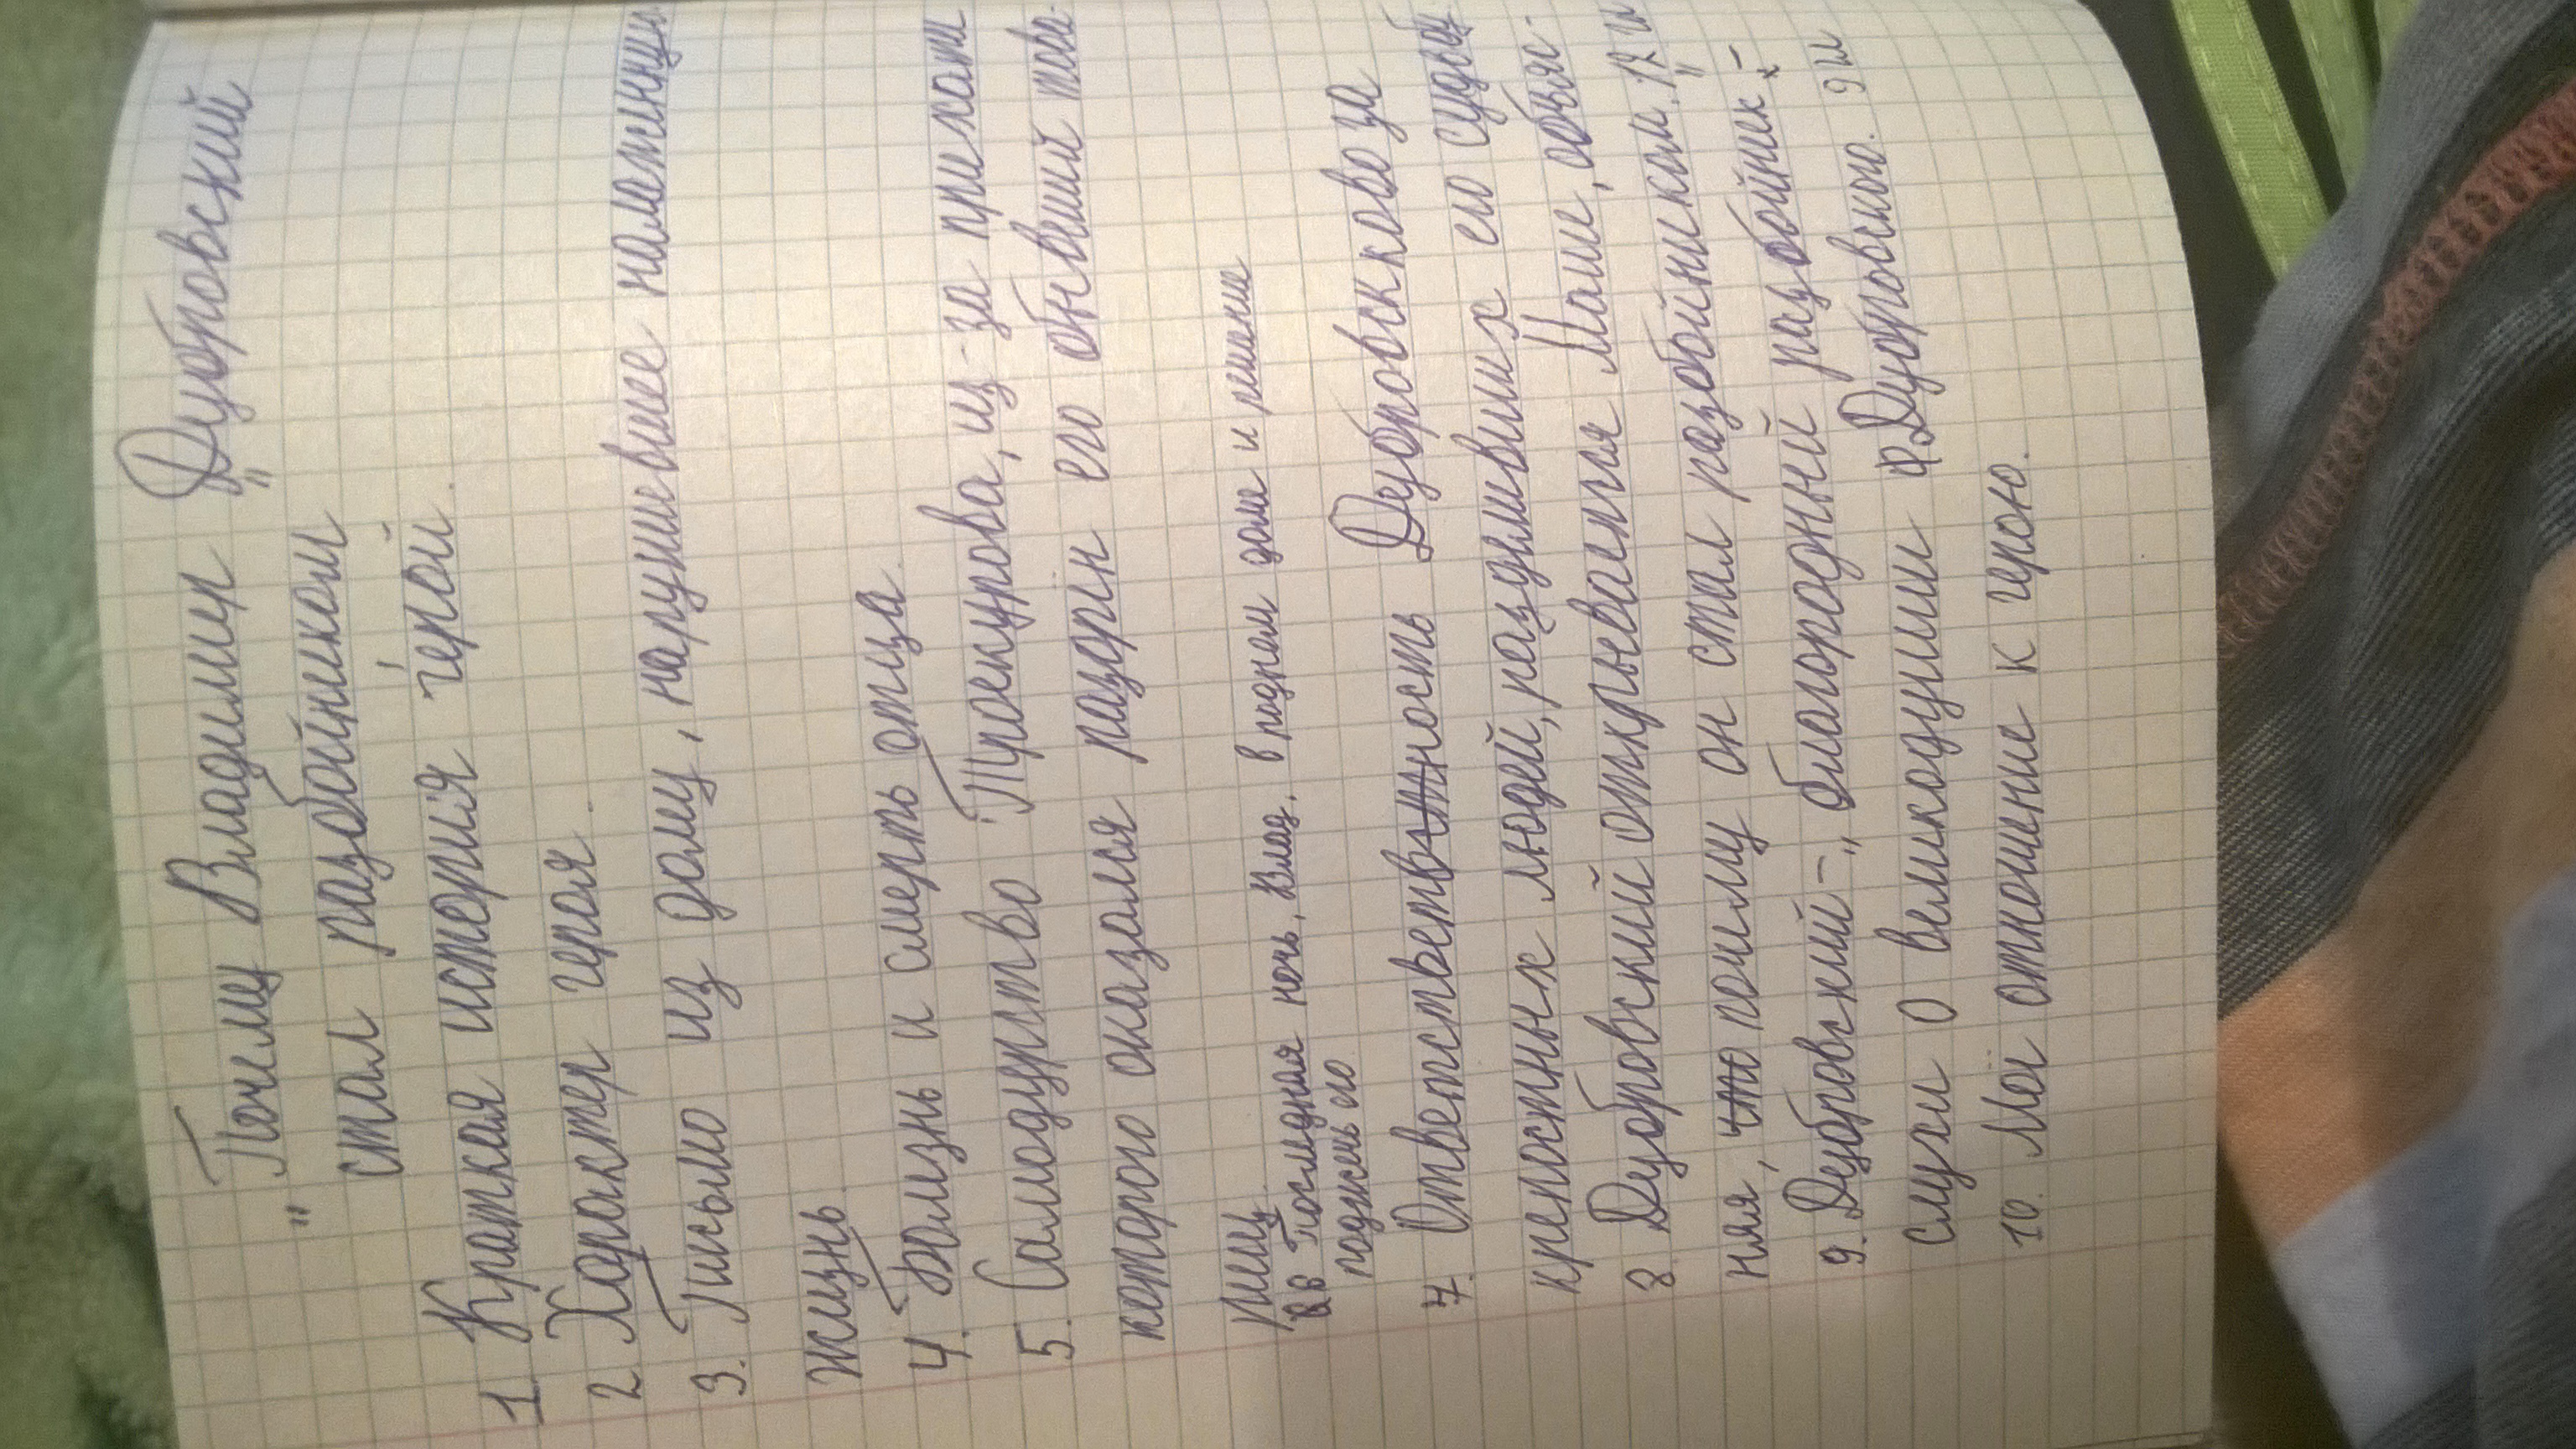 „Почему Владимир Дубровский
стал разбойником"
1 Краткая история герой.
2 Характер героя.
3. Письмо из дому, нарушевшее налаженную
жизнь.
4. Болезнь и смерть отца.
5. Самодурство Троекурова, из-за прихоти
которого оказался разорён его обневший това-
рищ.
6 Последняя ночь, Влад. в родном доме и решение
поджечь его
7. Ответственность Дубровсклово за
крепостных людей, разделивших его судьбу
8 Дубровский открывается Маше, объяс-
няя, что почему он стал разбойником. 12 гл
9. Дубровский-„благородный разбойник"-
слухи о великодушии Дубровского. 9 гл
10. Моё отношение к герою.